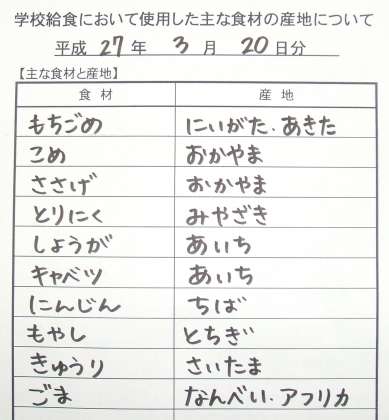 学校給食において使用した主な食材の産地について
平成 27 年 3 月 20 日分
【主な食材と産地】
食材 産地
もちごめ にいがた.あきた
こめ おかやま
ささげ おかやま
とりにく みやざき
しょうが あいち
キャベツ あいち
にんじん ちば
もやし とちぎ
きゅうり さいたま
ごま なんべい.アフリカ